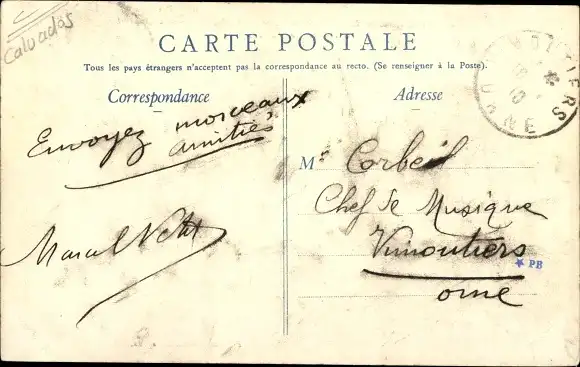 Calvados
CARTE POSTALE
Tous les pays étrangers n'acceptent pas la correspondance au recto. (Se renseigner à la Poste).
Correspondance
Envoyez morceaux
amitiés
Marcel
Adresse
Mr Corbeil
Chef de Musique
Vimoutiers
orne
PB
ORNE